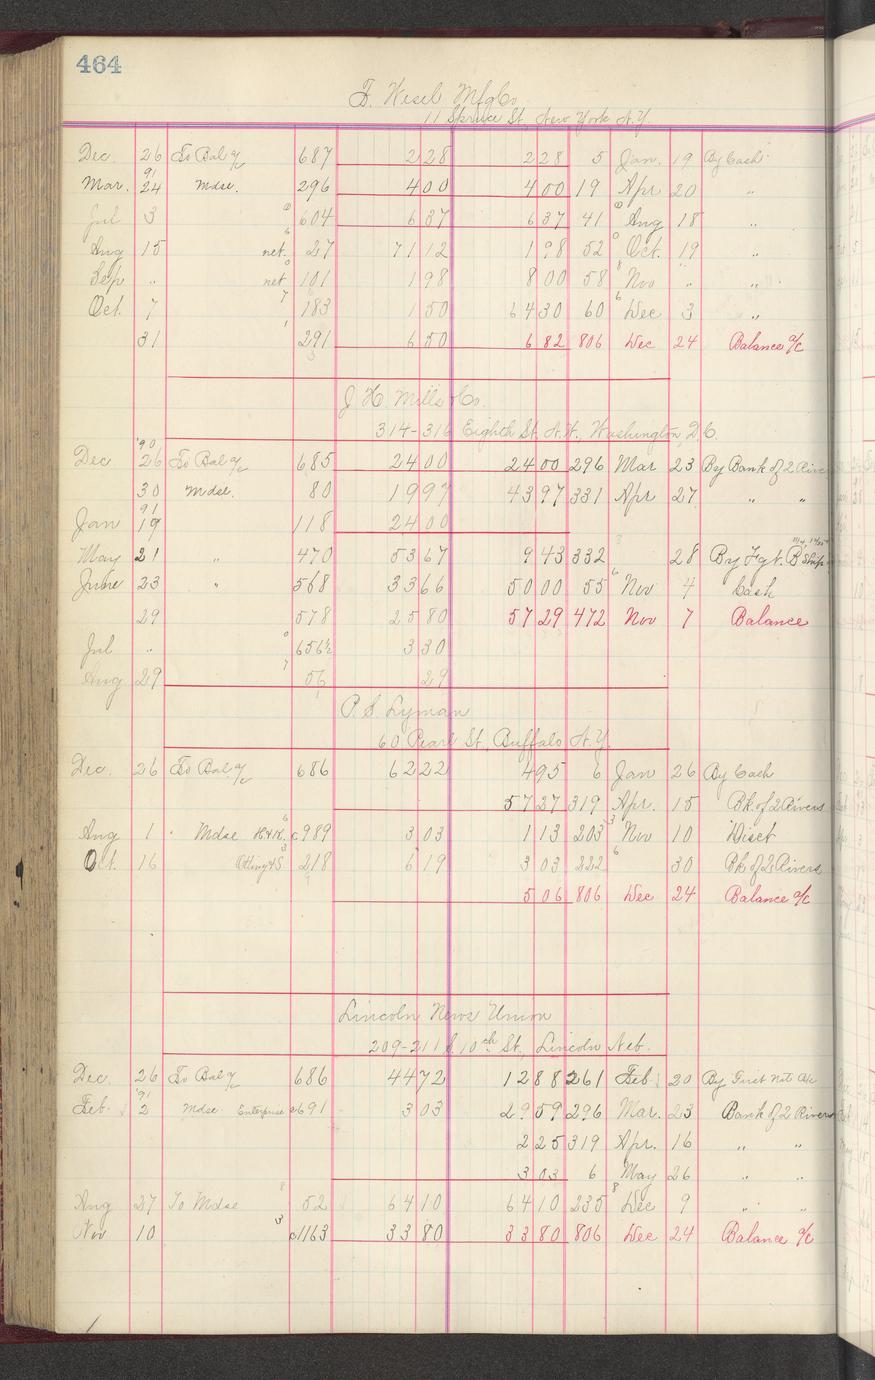 464
F. Wesel Mfg Co.
11 Spruce St, New York N.Y.
Dec. 26 To Bal a/c 687 2 28 2 28 5 Jan. 19 By Cash
91
Mar. 24 Mdse. 296 4 00 4 00 19 Apr 20 "
Jul 3 604 6 37 6 37 41 Aug 18 "
Aug 15 net. 27 71 12 1 98 52 Oct. 19 "
Sep " net 101 1 98 8 00 58 Nov " "
Oct. 7 183 1 50 64 30 60 Dec 3 "
31 291 6 50 6 82 806 Dec 24 Balance a/c
J. H. Mills Co.
314-316 Eighth St. N.W., Washington, D.C.
'90
Dec 26 To Bal a/c 685 24 00 24 00 296 Mar 23 By Bank of 2 Rivers
30 Mdse. 80 19 97 43 97 331 Apr 27 " "
91
Jan 19 118 24 00
May 21 " 470 53 67 9 43 332 28 By Fgt. B Ship
June 23 " 568 33 66 50 00 55 Nov 4 Cash
29 578 25 80 57 29 472 Nov 7 Balance
Jul " 656½ 3 30
Aug 29 56 29
P. S. Lyman
60 Pearl St, Buffalo N.Y.
Dec. 26 To Bal a/c 686 62 22 4 95 6 Jan 26 By Cash
57 27 319 Apr. 15 Bk. of 2 Rivers
Aug 1 Mdse H&H. c989 3 03 1 13 203 Nov 10 Disct
Oct. 16 218 6 19 3 03 222 30 Bk of 2 Rivers
5 06 806 Dec 24 Balance a/c
Lincoln News Union
209-211 S. 10th St, Lincoln Neb.
Dec. 26 To Bal a/c 686 44 72 12 88 261 Feb 20 By First Nat Bk
'91
Feb. 2 Mdse Enterprise c691 3 03 29 59 296 Mar. 23 Bank of 2 Rivers
2 25 319 Apr. 16 " "
3 03 6 May 26 " "
Aug 27 To Mdse 52 64 10 64 10 235 Dec 9 " "
Nov 10 c1163 33 80 33 80 806 Dec 24 Balance a/c